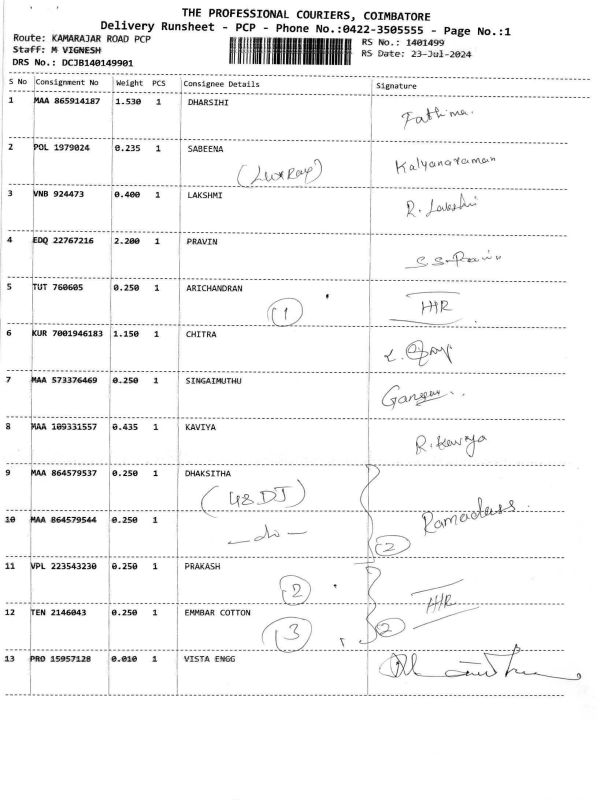 THE PROFESSIONAL COURIERS, COIMBATORE
Delivery Runsheet - PCP - Phone No.:0422-3505555 - Page No.:1
Route: KAMARAJAR ROAD PCP
RS No.: 1401499
Staff: M VIGNESH
RS Date: 23-Jul-2024
DRS No.: DCJB140149901
S No Consignment No Weight PCS Consignee Details Signature
1 MAA 865914187 1.530 1 DHARSIHI Fathima.
2 POL 1979024 0.235 1 SABEENA Kalyanaraman
3 VNB 924473 0.400 1 LAKSHMI R. Lakshmi
4 EDQ 22767216 2.200 1 PRAVIN S.S.
5 TUT 760605 0.250 1 ARICHANDRAN
1
6 KUR 7001946183 1.150 1 CHITRA
7 MAA 573376469 0.250 1 SINGAIMUTHU
8 MAA 109331557 0.435 1 KAVIYA R. Kavya
9 MAA 864579537 0.250 1 DHAKSITHA
(48 DJ)
10 MAA 864579544 0.250 1 -do- Ramadass
2
11 VPL 223543230 0.250 1 PRAKASH
2
12 TEN 2146043 0.250 1 EMMBAR COTTON
3 2
13 PRO 15957128 0.010 1 VISTA ENGG